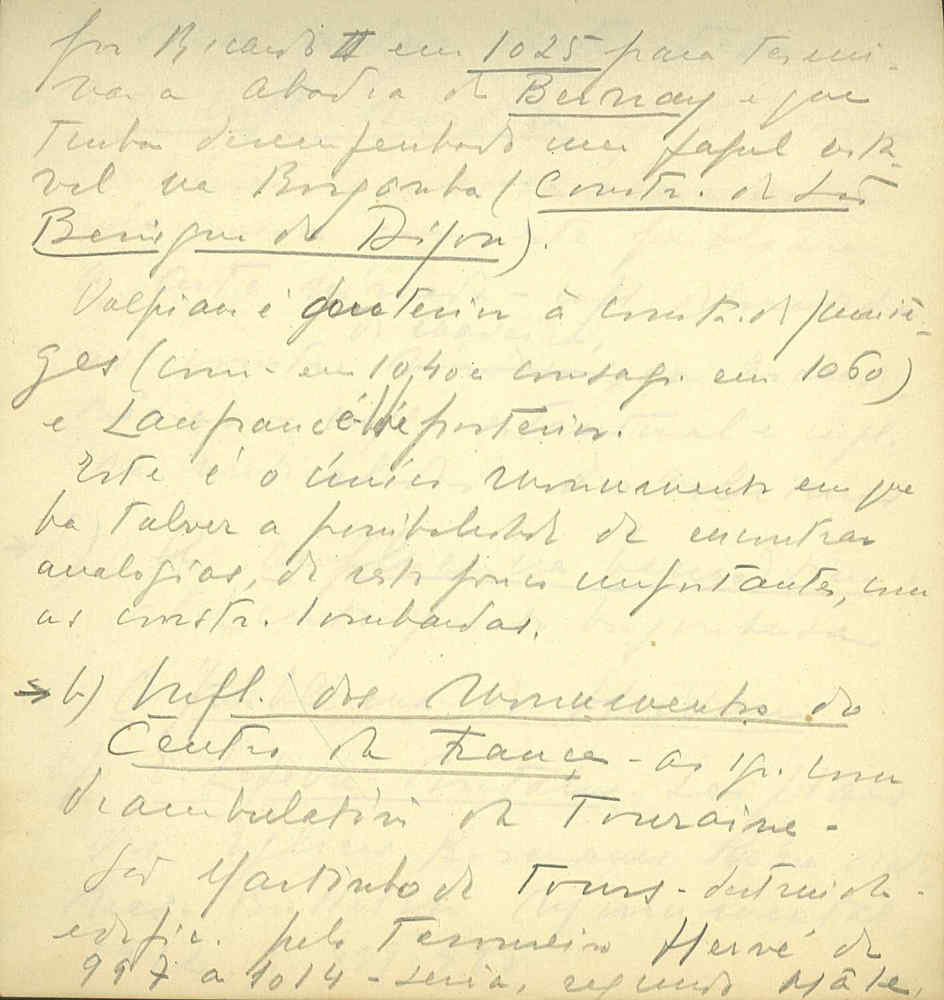 por Ricardo II em 1025 para termi-
nar a abadia de Bernay e que
tinha desempenhado um papel notá-
vel na Borganha (Constr. de São
Benigne de Dijon).
Volpiano é anterior à constr. de Jumiè-
ges (com- em 1040 e consagr. em 1060)
e Lanfranc é-lhe posterior.
Este é o único monumento em que
ha talvez a possibilidade de encontrar
analogias, de resto pouco importantes, com
as constr. lombardas.
→ b) Infl. dos monumentos do
Centro da France - as igr. com
deambulatório da Touraine -
São Martinho de Tours - destruida -
edific. pelo Tesoureiro Hervé de
997 a 1014 - seria, segundo Mâle,